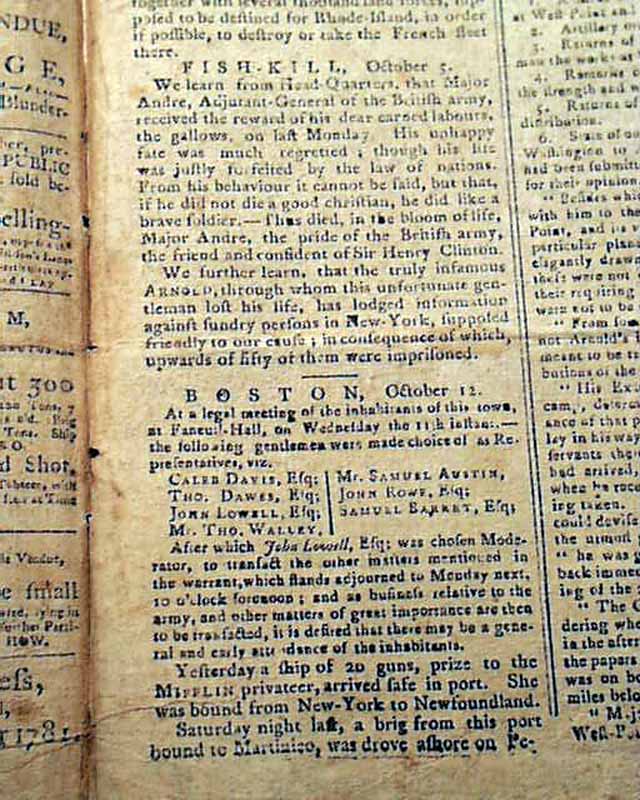 NDUE,
G E,
Blunder.
PUBLIC
sold be-
elling-
M,
300
d Shot,
Vendue,
be small
HOW.
1781.
together with several thousand land forces, sup-
posed to be destined for Rhode-Island, in order
if possible, to destroy or take the French fleet
there.
FISH-KILL, October 5.
We learn from Head-Quarters, that Major
Andre, Adjutant-General of the British army,
received the reward of his dear earned labours,
the gallows, on last Monday. His unhappy
fate was much regretted; though his life
was justly forfeited by the law of nations.
From his behaviour it cannot be said, but that,
if he did not die a good christian, he did like a
brave soldier.—Thus died, in the bloom of life,
Major Andre, the pride of the British army,
the friend and confident of Sir Henry Clinton.
We further learn, that the truly infamous
ARNOLD, through whom this unfortunate gen-
tleman lost his life, has lodged information
against sundry persons in New-York, supposed
friendly to our cause; in consequence of which,
upwards of fifty of them were imprisoned.
BOSTON, October 12.
At a legal meeting of the inhabitants of this town,
at Faneuil-Hall, on Wednesday the 11th instant.—
the following gentlemen were made choice of as Re-
presentatives, viz.
CALEB DAVIS, Esq; Mr. SAMUEL AUSTIN,
THO. DAWES, Esq; JOHN ROWE, Esq;
JOHN LOWELL, Esq; SAMUEL BARRET, Esq;
Mr. THO. WALLEY,
After which John Lowell, Esq; was chosen Mode-
rator, to transact the other matters mentioned in
the warrant, which stands adjourned to Monday next,
10 o'clock forenoon; and as business relative to the
army, and other matters of great importance are then
to be transacted, it is desired that there may be a gene-
ral and early attendance of the inhabitants.
Yesterday a ship of 20 guns, prize to the
MIFFLIN privateer, arrived safe in port. She
was bound from New-York to Newfoundland.
Saturday night last, a brig from this port
bound to Martinico, was drove ashore on Pe-
at West Point and
2. Artillery
3. Returns of
man the works at
4. Remarks
the strength and
5. Returns of
distribution.
6. State of
Washington to
had been submit
for their opinion
" Besides which
with him to the
Point, and its
particular plan
elegantly drawn
these were not
their requiring
were not to be
" From some
not Arnold's
meant to be
butions of the
" His Ex
camp,
ance of that
lay in his way
servants
had arrived,
when he rece
ing taken.
could devise
the utmost
" he was g
back immed
ing of the
" The G
dering whe
in the after
the papers
was on bo
miles below
" Maj
West-Poi